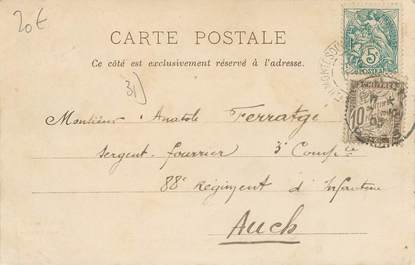 20€
CARTE POSTALE
Ce côté est exclusivement réservé à l'adresse.
5c
POSTES
10
31
Monsieur Anatole Ferratge
sergent fourrier 3e Compie
88e Régiment d'Infanterie
Auch